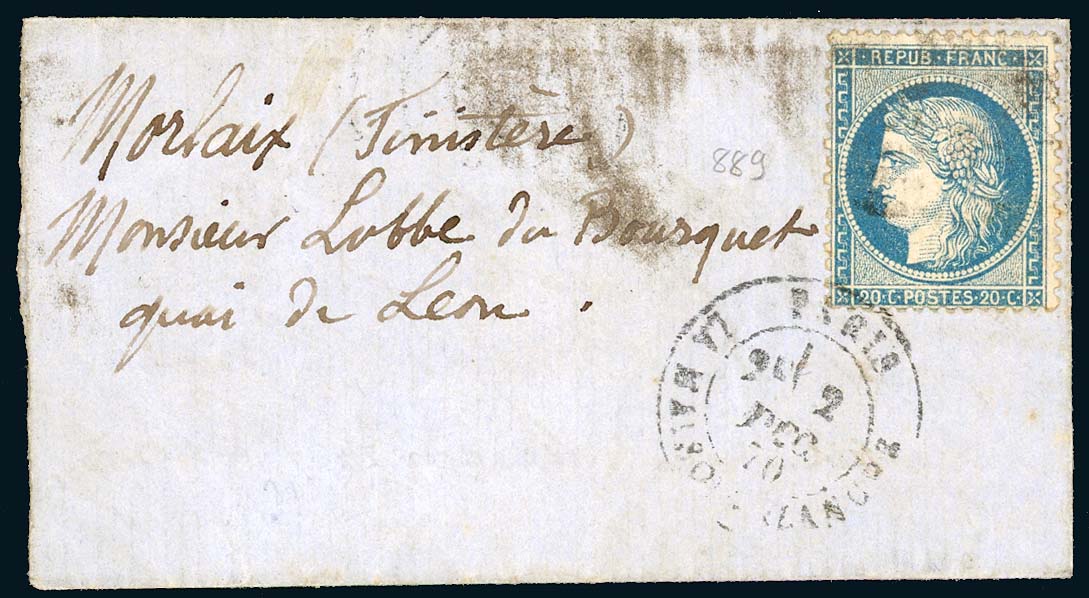 REPUB·FRANC·
Morlaix (Finistère)
889
Monsieur Lobbe du Bourquet
20·C·POSTES·20·C·
quai de Leon.
PARIS LA MAISON BLANCHE
2
DEC
70